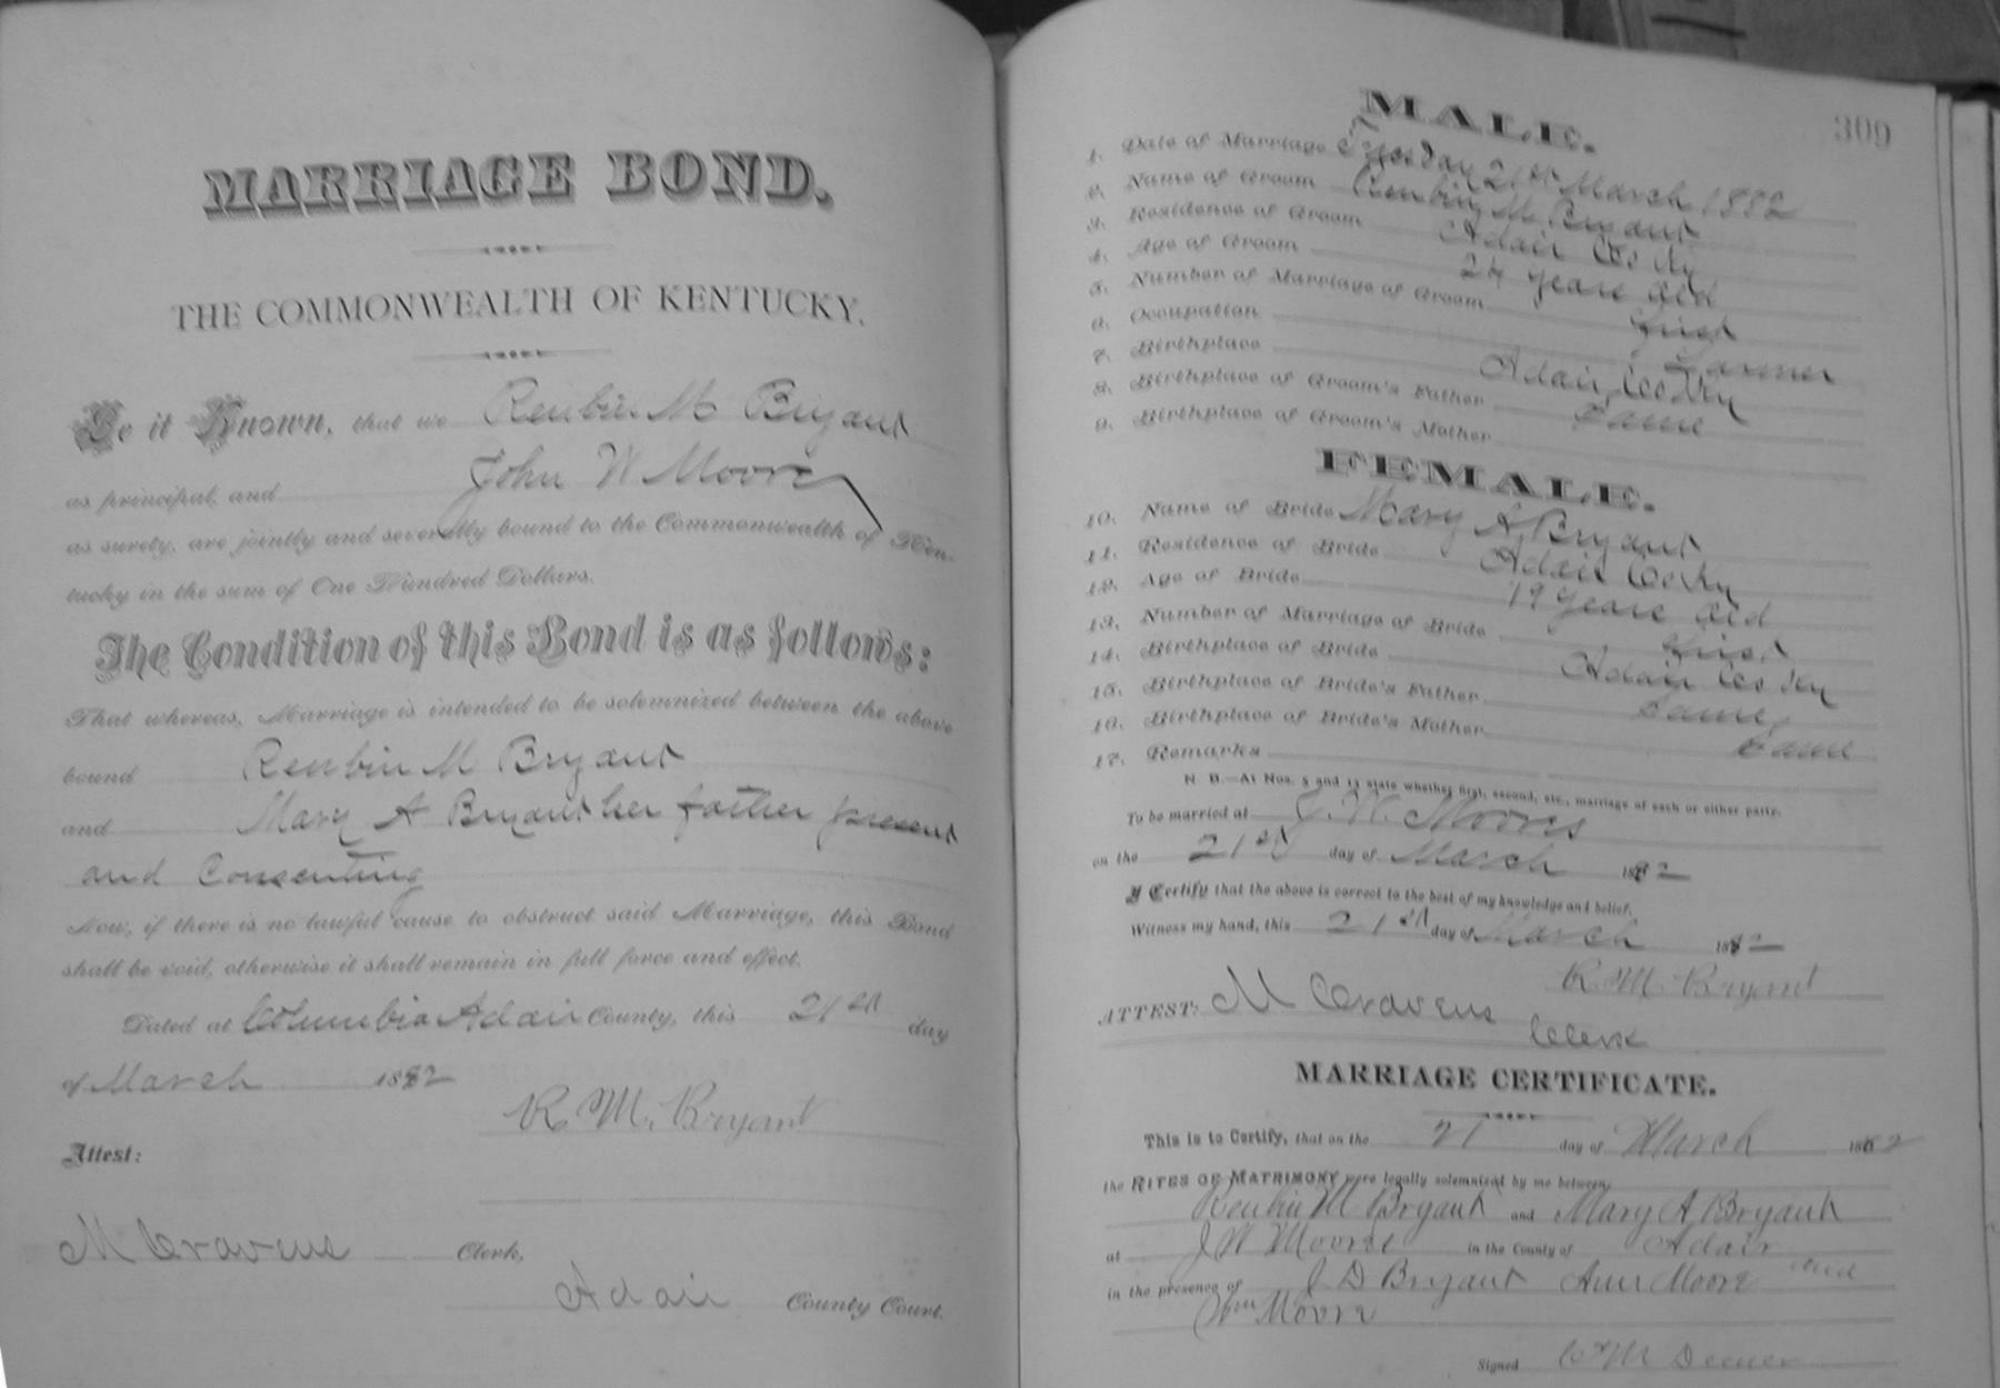 MARRIAGE BOND.
THE COMMONWEALTH OF KENTUCKY.
Be it Known, that we Reubin M Bryant
as principal, and John W Moore
as surety, are jointly and severally bound to the Commonwealth of Ken-
tucky in the sum of One Hundred Dollars.
The Condition of this Bond is as follows:
That whereas, Marriage is intended to be solemnized between the above
bound Reubin M Bryant
and Mary A Bryant her father present
and Consenting
Now, if there is no lawful cause to obstruct said Marriage, this Bond
shall be void, otherwise it shall remain in full force and effect.
Dated at Columbia Adair County, this 21st day
of March 1882
R. M. Bryant
Attest:
M Cravens Clerk,
Adair County Court.
309
MALE.
1. Date of Marriage Tuesday 21st March 1882
2. Name of Groom Reubin M Bryant
3. Residence of Groom Adair Co Ky
4. Age of Groom 24 years old
5. Number of Marriage of Groom first
6. Occupation Farmer
7. Birthplace Adair Co Ky
8. Birthplace of Groom's Father Same
9. Birthplace of Groom's Mother
FEMALE.
10. Name of Bride Mary A Bryant
11. Residence of Bride Adair Co Ky
12. Age of Bride 19 years old
13. Number of Marriage of Bride first
14. Birthplace of Bride Adair Co Ky
15. Birthplace of Bride's Father Same
16. Birthplace of Bride's Mother Same
17. Remarks
N. B.—At Nos. 5 and 13 state whether first, second, etc., marriage of each or either party.
To be married at J. W. Moores
on the 21st day of March 1882
I Certify that the above is correct to the best of my knowledge and belief.
Witness my hand, this 21st day of March 1882
R. M. Bryant
ATTEST: M Cravens
Clerk
MARRIAGE CERTIFICATE.
This is to Certify, that on the 21 day of March 1882
the RITES OF MATRIMONY were legally solemnized by me between
Reubin M Bryant and Mary A Bryant
at J W Moore in the County of Adair
in the presence of J D Bryant Ann Moore and
Wm Moore
Signed